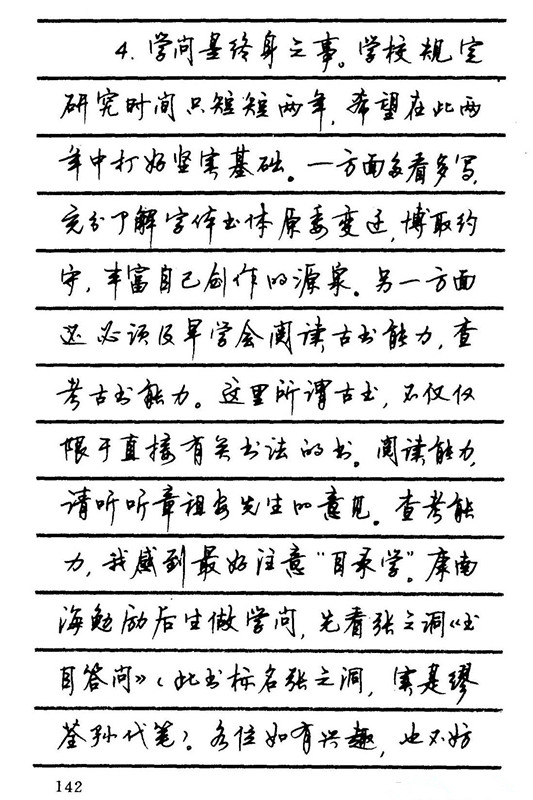 4. 学问是终身之事。学校规定
研究时间只短短两年，希望在此两
年中打好坚实基础。一方面多看多写，
充分了解字体书体原委变迁，博取约
守，丰富自己创作的源泉。另一方面
还必须及早学会阅读古书能力，查
考古书能力。这里所谓古书，不仅仅
限于直接有关书法的书。阅读能力，
请听听章祖安先生的意见。查考能
力，我感到最好注意“目录学”。康南
海勉励后生做学问，先看张之洞《书
目答问》（此书标名张之洞，实是缪
荃孙代笔）。各位如有兴趣，也不妨
142